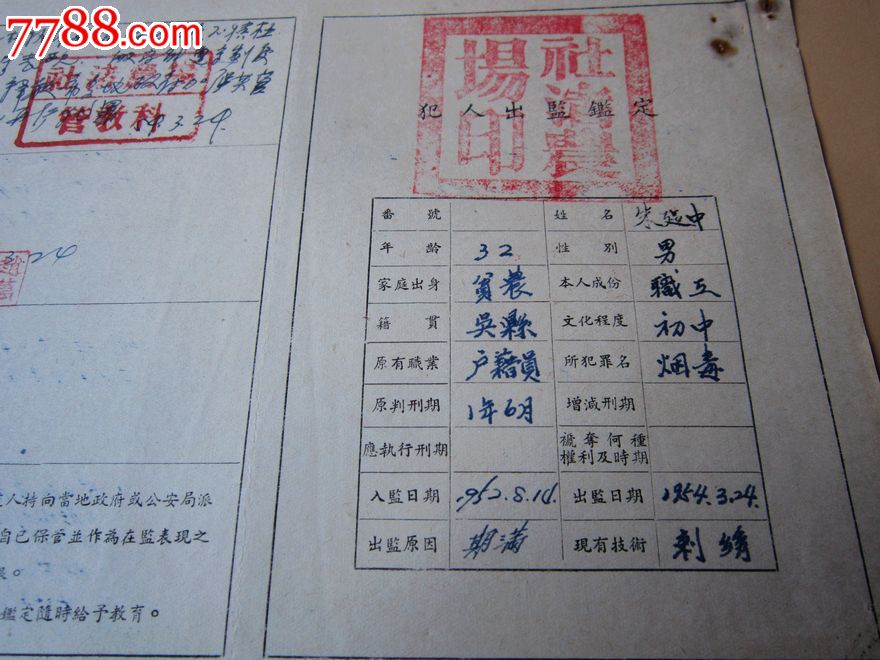 7788.com
管教科
3.24.
3.24
人持向當地政府或公安局派
自已保管並作為在監表現之
鑑定隨時給予教育。
場印
犯人出監鑑定
番號 姓名 朱延中
年齡 32 性別 男
家庭出身 貧農 本人成份 職工
籍貫 吳縣 文化程度 初中
原有職業 户籍員 所犯罪名 烟毒
原判刑期 1年6月 增減刑期
應執行刑期 褫奪何種權利及時期
入監日期 1952.8.14. 出監日期 1954.3.24.
出監原因 期滿 現有技術 刺绣